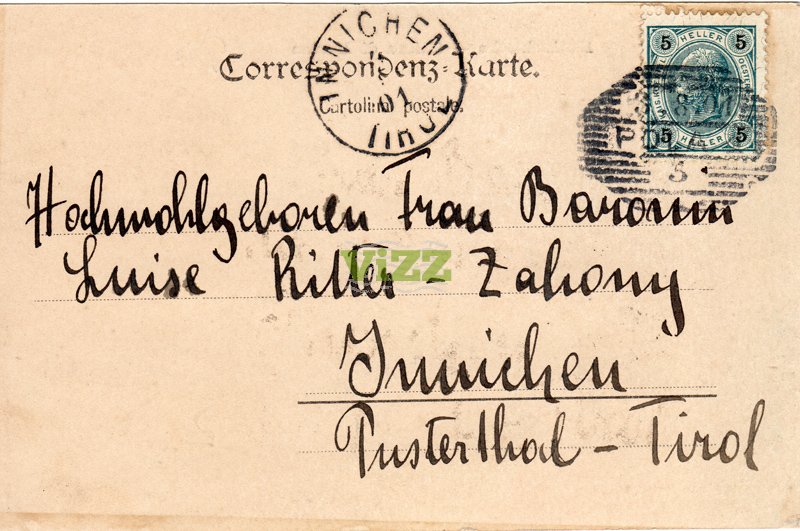 Correspondenz-Karte.
Cartolina postale.
INNICHEN
01
TIROL
5 HELLER 5
5 HELLER 5
5
Hochwohlgeboren Frau Baronin
Luise Ritter - Zahony
ViZZ
Innichen
Pusterthal - Tirol